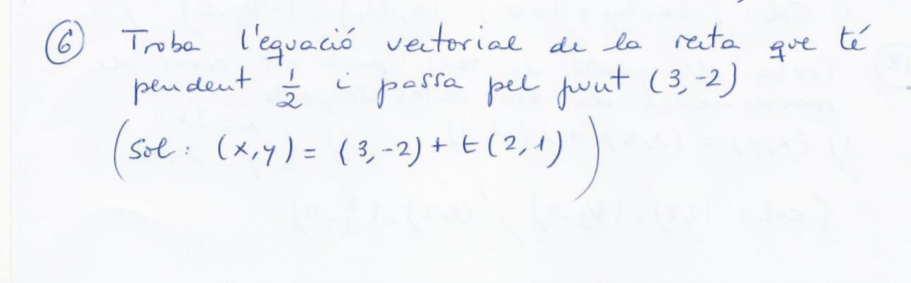 ⑥ Troba l'equació vectorial de la recta que té
pendent 1/2 i passa pel punt (3,-2)
(Sol: (x,y) = (3,-2) + t (2,1))